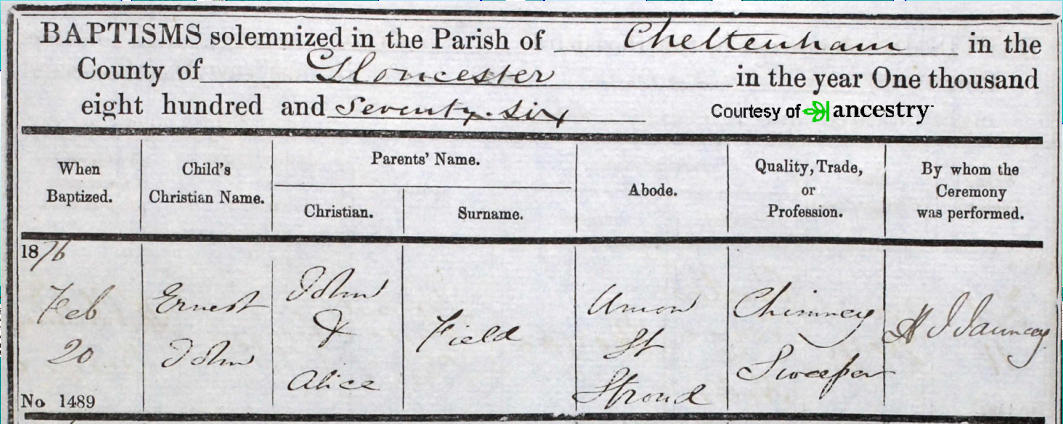 BAPTISMS solemnized in the Parish of Cheltenham in the
County of Gloucester in the year One thousand
eight hundred and Seventy-six
Courtesy of ancestry
When Baptized.
Child's Christian Name.
Parents' Name.
Christian.
Surname.
Abode.
Quality, Trade, or Profession.
By whom the Ceremony was performed.
1876
Feb
20
Ernest
John
John
&
Alice
Field
Union
St
Stroud
Chimney
Sweeper
H J Jauncey
No 1489